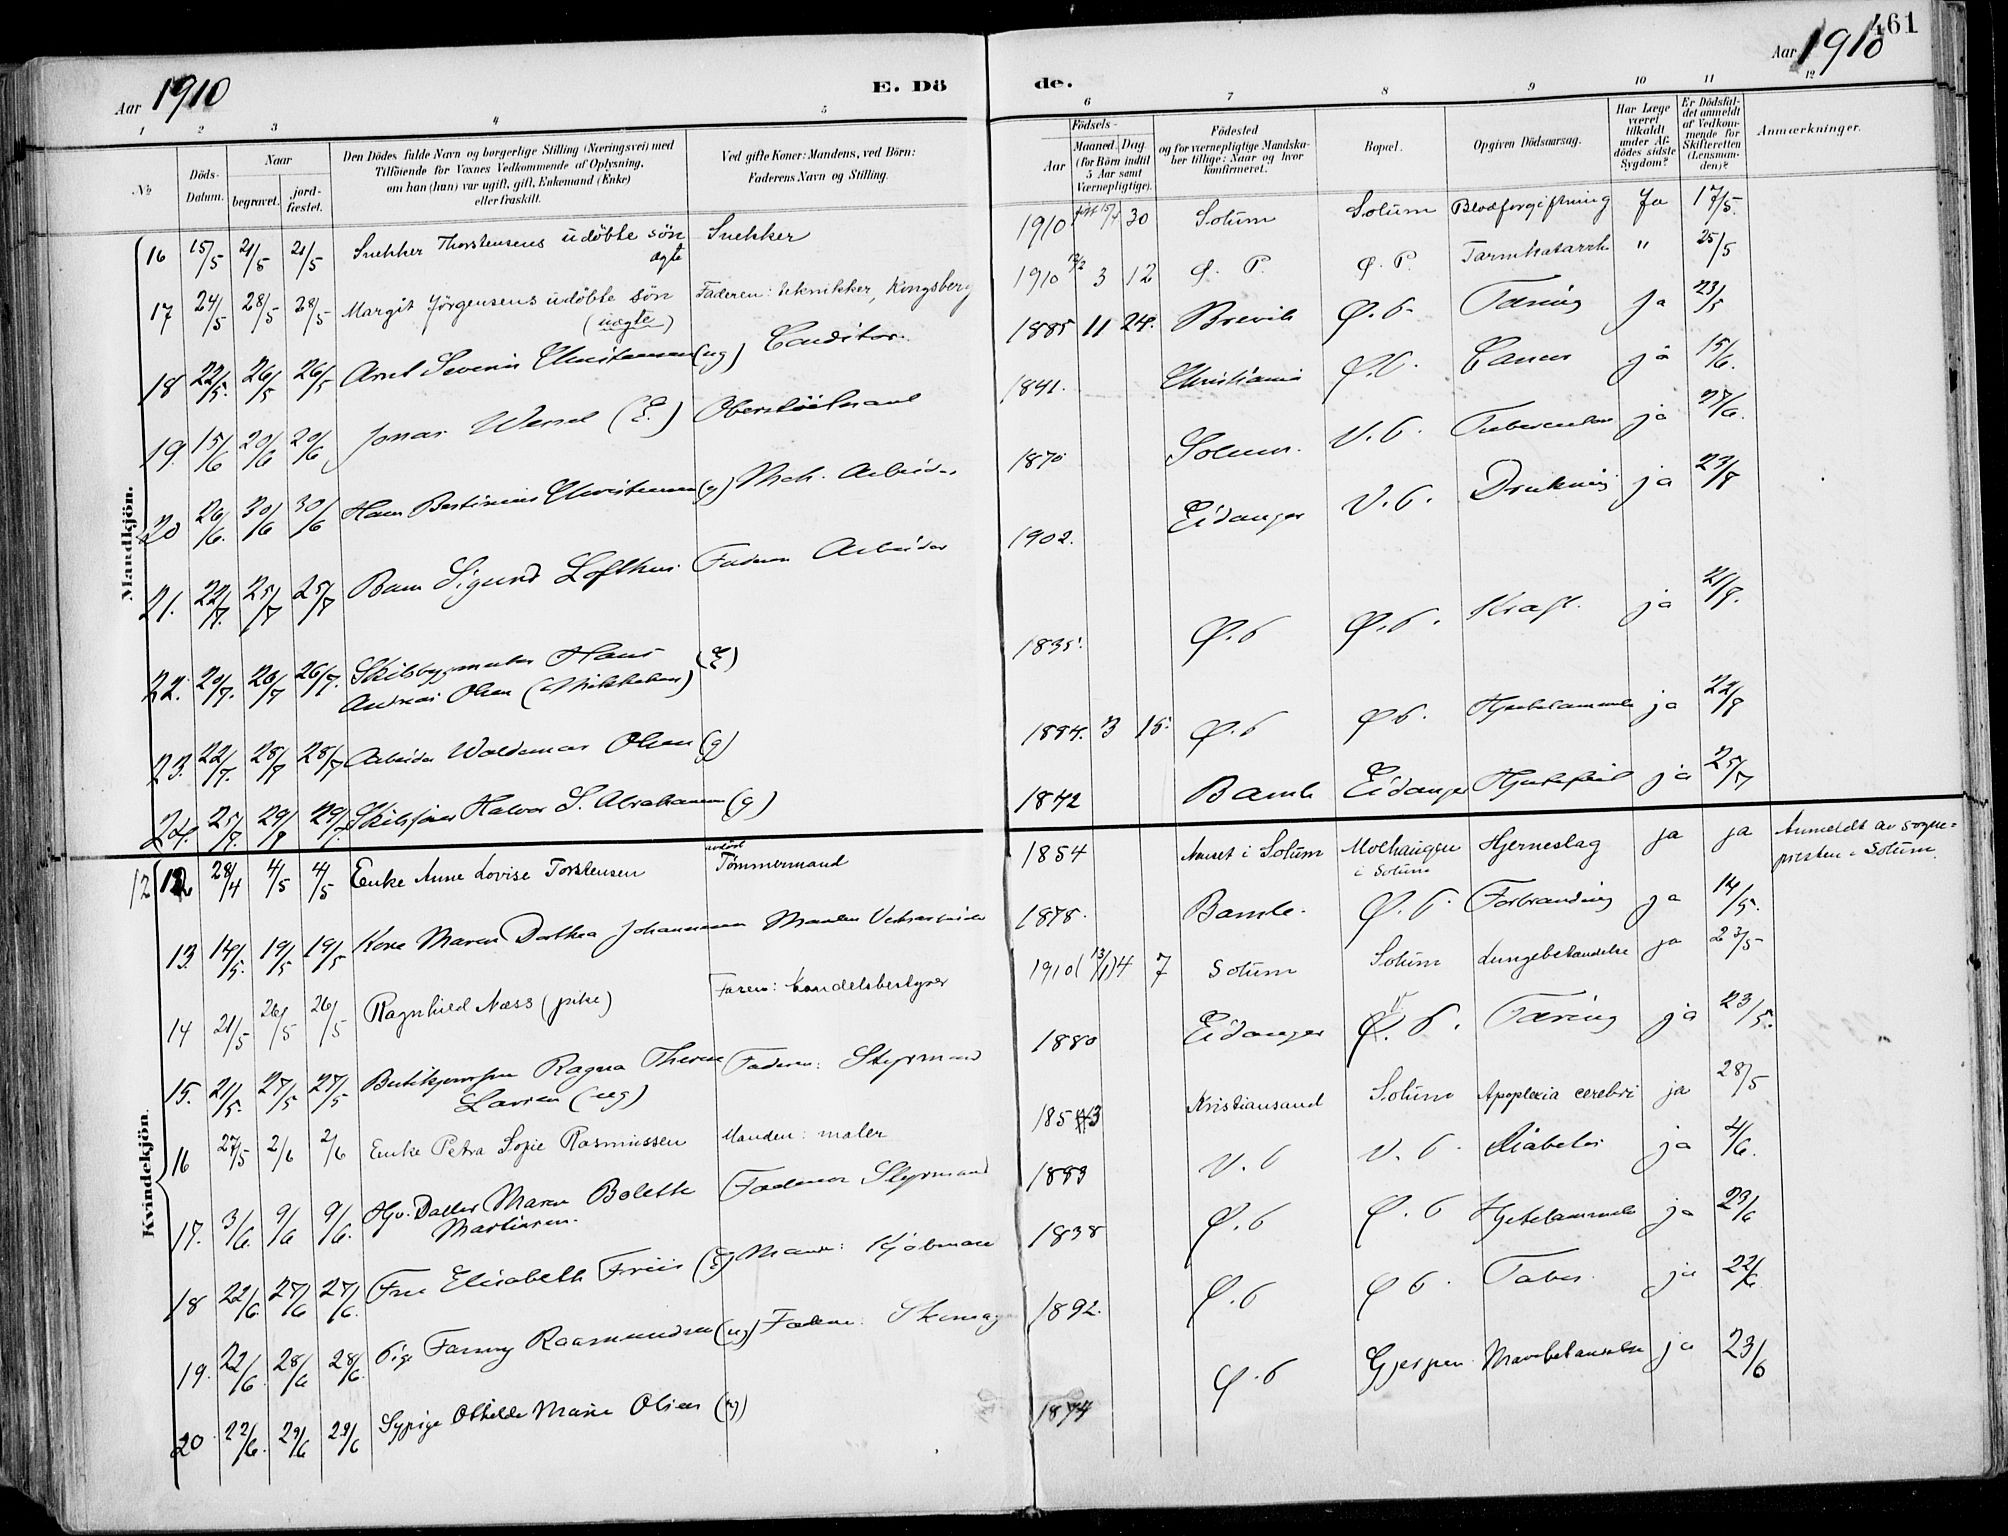 461
Aar 1910
E. Dö
de.
Aar 1910
1 2 3 4 5
6 7 8 9 10 11 12
№
Döds-Datum.
Naar
begravet.
jord-fæstet.
Den Dödes fulde Navn og borgerlige Stilling (Næringsvei) med
Tilföiende for Voxnes Vedkommende af Oplysning,
om han (hun) var ugift, gift, Enkemand (Enke)
eller fraskilt.
Ved gifte Koner: Mandens, ved Börn:
Faderens Navn og Stilling.
Födsels-
Aar
Maaned.
Dag.
(for Börn indtil
5 Aar samt
Værnepligtige).
Födested
og for værnepligtige Mandska-
ber tillige: Naar og hvor
konfirmeret.
Bopæl.
Opgiven Dödsaarsag.
Har Læge
været
tilkaldt
under Af-
dödes sidste
Sygdom?
Er Dödsfal-
det anmeldt
af Vedkom-
mende for
Skifteretten
(Lensman-
den)?
Anmærkninger.
Mandkjön.
16 15/5 21/5 21/5 Snekker Thorstensens udöbte sön ægte Snekker 1910 15/4 30 Solum Solum Blodforgiftning Ja 17/5.
17 24/5 28/5 28/5 Margit Jörgensens udöbte sön (uægte) Faderen: tekniker, Kongsberg 1910 12/2 3 12 Ø. P. Ø. P. Tarmkatarrh " 25/5
18 22/5. 26/5 26/5 Severin Christensen (ug) Conditor. 1885 11 24. Brevik Ø. P. Tæring Ja 23/5
19. 15/6 20/6 20/6 Jonas Wessel (E.) Oberstlöitnant 1841. Christiania Ø. P. Cancer ja 15/6.
20 26/6. 30/6 30/6 Hans Christensen (g) Mek. Arbeider 1870 Solum. V. P. Tuberculose ja 27/6.
21. 22/7. 25/7 25/7 Barn Sigurd Lofthus Faderen Arbeider 1902. Eidanger V. P. Drukning ja 23/7
22. 20/7. 26/7 26/7. Skibsbygmester Hans
Andreas Olsen (Mikkelsen) (E) 1835. Ø. P Ø. P. Kræft. ja 21/7.
23. 22/7. 28/7 28/7 Arbeider Waldemar Olsen (g) 1884. 3 15. Ø. P Ø P. Hjertelammelse ja 22/7
24. 25/7. 29/7 29/7 Skibsfører Halvor S. Abrahamsen (g) 1842 Bamle Eidanger Hjertefeil ja 25/7
Kvindekjön.
12 28/4 4/5 4/5 Enke Anne Lovise Torstensen avdöd Tømmermand 1854 i Solum Molhaugen i Solum Hjerneslag ja ja Anmeldt av sogne=
presten i Solum.
13. 14/5. 19/5 19/5 Kone Maren Dorthea Johannesen Manden 1878. Bamle. Ø. P. Forbrænding ja 14/5.
14 21/5 26/5 26/5 Ragnhild Næss (pike) Faren: handelsbestyrer 1910 (13/1) 4 7 Solum Solum Lungebetændelse ja 23/5
15. 21/5. 27/5 27/5 Ragna Therese
Larsen (ug) Faderen: Styrmand 1880 Eidanger P. Tæring ja 23/5.
16 27/5 2/6 2/6 Enke Petra Sofie Rasmussen Manden: maler 1853 Kristiansand Solum Apoplexia cerebri ja 28/5
17. 3/6. 9/6 9/6. Datter Maren Bolette
Martinsen. Faderen Styrmand 1883 V. P V. P. Diabetes ja 4/6.
18 22/6. 27/6 27/6. Fru Elisabeth Friis (E) Mand: Kjøbmand 1838 Ø. P Ø. P Hjertelammelse ja 23/6
19. 22/6. 28/6 28/6. Pige Fanny Rasmundsen (ug) Faderen: Skomager 1892. Ø. P Ø P. Tabes. ja 22/6.
20. 22/6. 29/6 29/6 Sypige Othilde Marie Olsen (ug) 1874 Ø. P Gjerpen Mavebetændelse ja 23/6